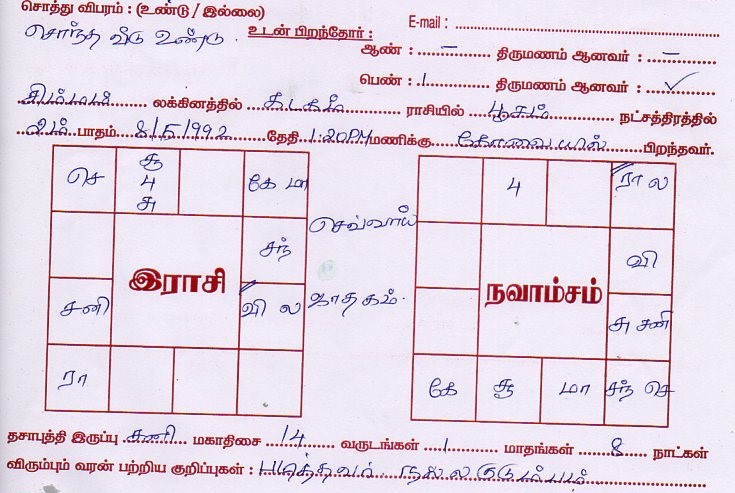 சொத்து விபரம் : (உண்டு / இல்லை)
E-mail :
சொந்த வீடு உண்டு. உடன் பிறந்தோர் :
ஆண் : – திருமணம் ஆனவர் : –
பெண் : 1 திருமணம் ஆனவர் : ✓
சிம்மம் லக்கினத்தில் கடகம் ராசியில் பூசம் நட்சத்திரத்தில்
2ம் பாதம் 8/5/1992 தேதி 1:20PM மணிக்கு கோவையில் பிறந்தவர்.
செ சூ 4 சு கே மா
சந்
சனி வி ல
ரா
இராசி
செவ்வாய்
ஜாதகம்.
4 ரா ல
வி
சு சனி
கே சூ மா சந் செ
நவாம்சம்
தசாபுத்தி இருப்பு சனி மகாதிசை 14 வருடங்கள் 1 மாதங்கள் 8 நாட்கள்
விரும்பும் வரன் பற்றிய குறிப்புகள் : படித்தவர் நல்ல குடும்பம்